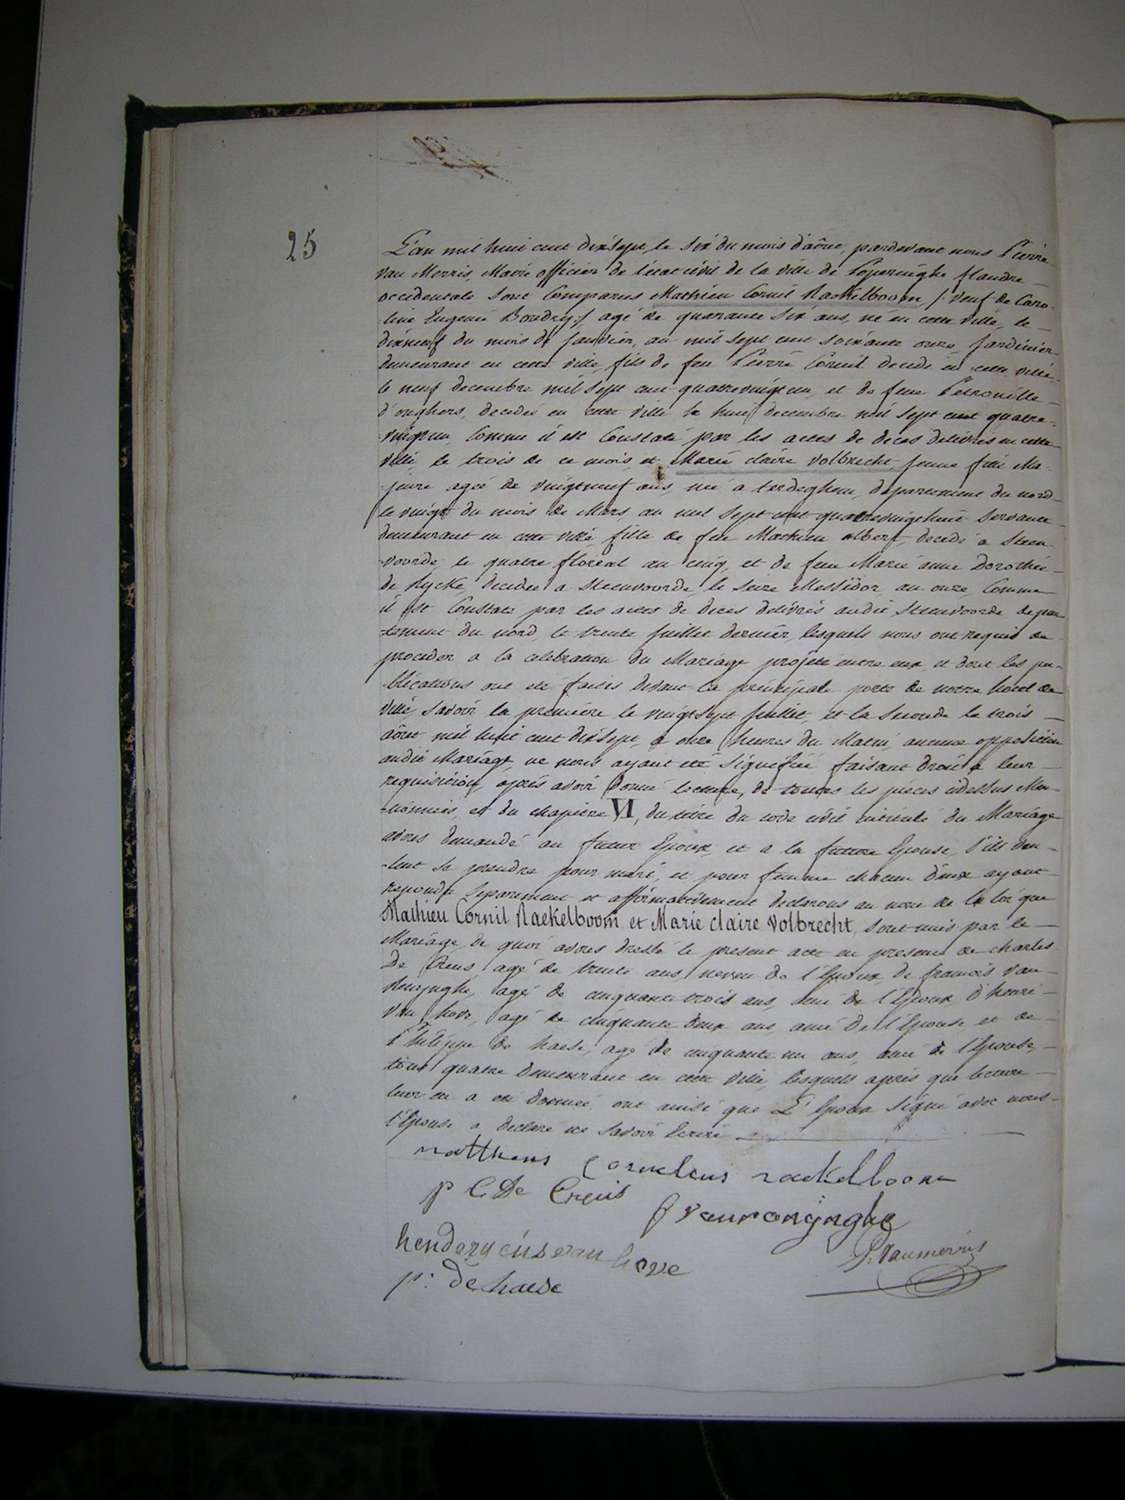 25
L'an mil huit cent dix sept, le six du mois d'août, pardevant nous Pierre
van Merris, Maire officier de l'état civil de la ville de Poperinghe flandre
occidentale sont Comparus Mathieu Cornil Raekelboom, /: veuf de Caro-
line Eugenie Boudry :/ agé de quarante six ans, né en cette ville, le
dixneuf du mois de Janvier, an mil sept cent soixante onze, Jardinier
demeurant en cette ville, fils de feu Pierre Corneil decedé en cette ville
le neuf decembre mil sept cent quatrevingt un, et de feue Petronille
d'oughers, decedée en cette ville le huit decembre mil sept cent quatre-
vingt un, comme il est Constaté par les actes de deces delivrés en cette
ville le trois de ce mois et Marie claire Volbrecht, jeune fille Ma-
jeure agée de vingtneuf ans, née a terdeghem, departement du nord
le vingt du mois de Mars an mil sept cent quatrevingt huit servante
demeurant en cette ville, fille de feu Mathieu albert, decedé a Steen-
voorde, le quatre floréal an cinq, et de feue Marie anne Dorothée
de Rycke, decedée a Steenvoorde, le seize Messidor an onze, comme
il est Constaté par les actes de deces delivrés audit Steenvoorde depar-
tement du nord, le trente Juillet dernier, lesquels nous ont requis de
proceder a la celebration du Mariage projetté entre eux, et dont les pu-
blications ont été faites devant la principale porte de notre hotel de
ville, savoir la première le vingtsept Juillet, et la seconde le trois
août mil huit cent dixsept, a onze heures du Matin, aucune opposition
audit Mariage ne nous ayant été signifiée faisant droit a leur
requisition, après avoir donné lecture, de toutes les pièces cidessus Men-
tionnées, et du chapitre VI, du titre du code civil intitulé du Mariage
avons demandé au futur Epoux, et a la future Epouse, s'ils veu-
lent se prendre pour mari, et pour femme chacun d'eux ayant
repondu séparement et affirmativement declarons au nom de la loi que
Mathieu Cornil Raekelboom et Marie claire Volbrecht, sont unis par le
Mariage de quoi avons dressé le present acte en presence de charles
De Creus, agé de trente ans, neveu de l'Epoux, de francois van
, agé de cinquante trois ans, ami de l'Epoux d'henri
van hove, agé de cinquante deux ans, ami de l'Epouse et de
Philippe de haese, agé de cinquante un ans, ami de l'Epouse,
tous quatre demeurant en cette ville, lesquels après que lecture
leur en a été donnée ont ainsi que L'Epoux signé avec nous
l'Epouse a declaré ne savoir Ecrire
mattheus corneleus raekelboom
p C De Creus
f vanronynghe
henderycus van hove
P. Vanmerris
p: De haese